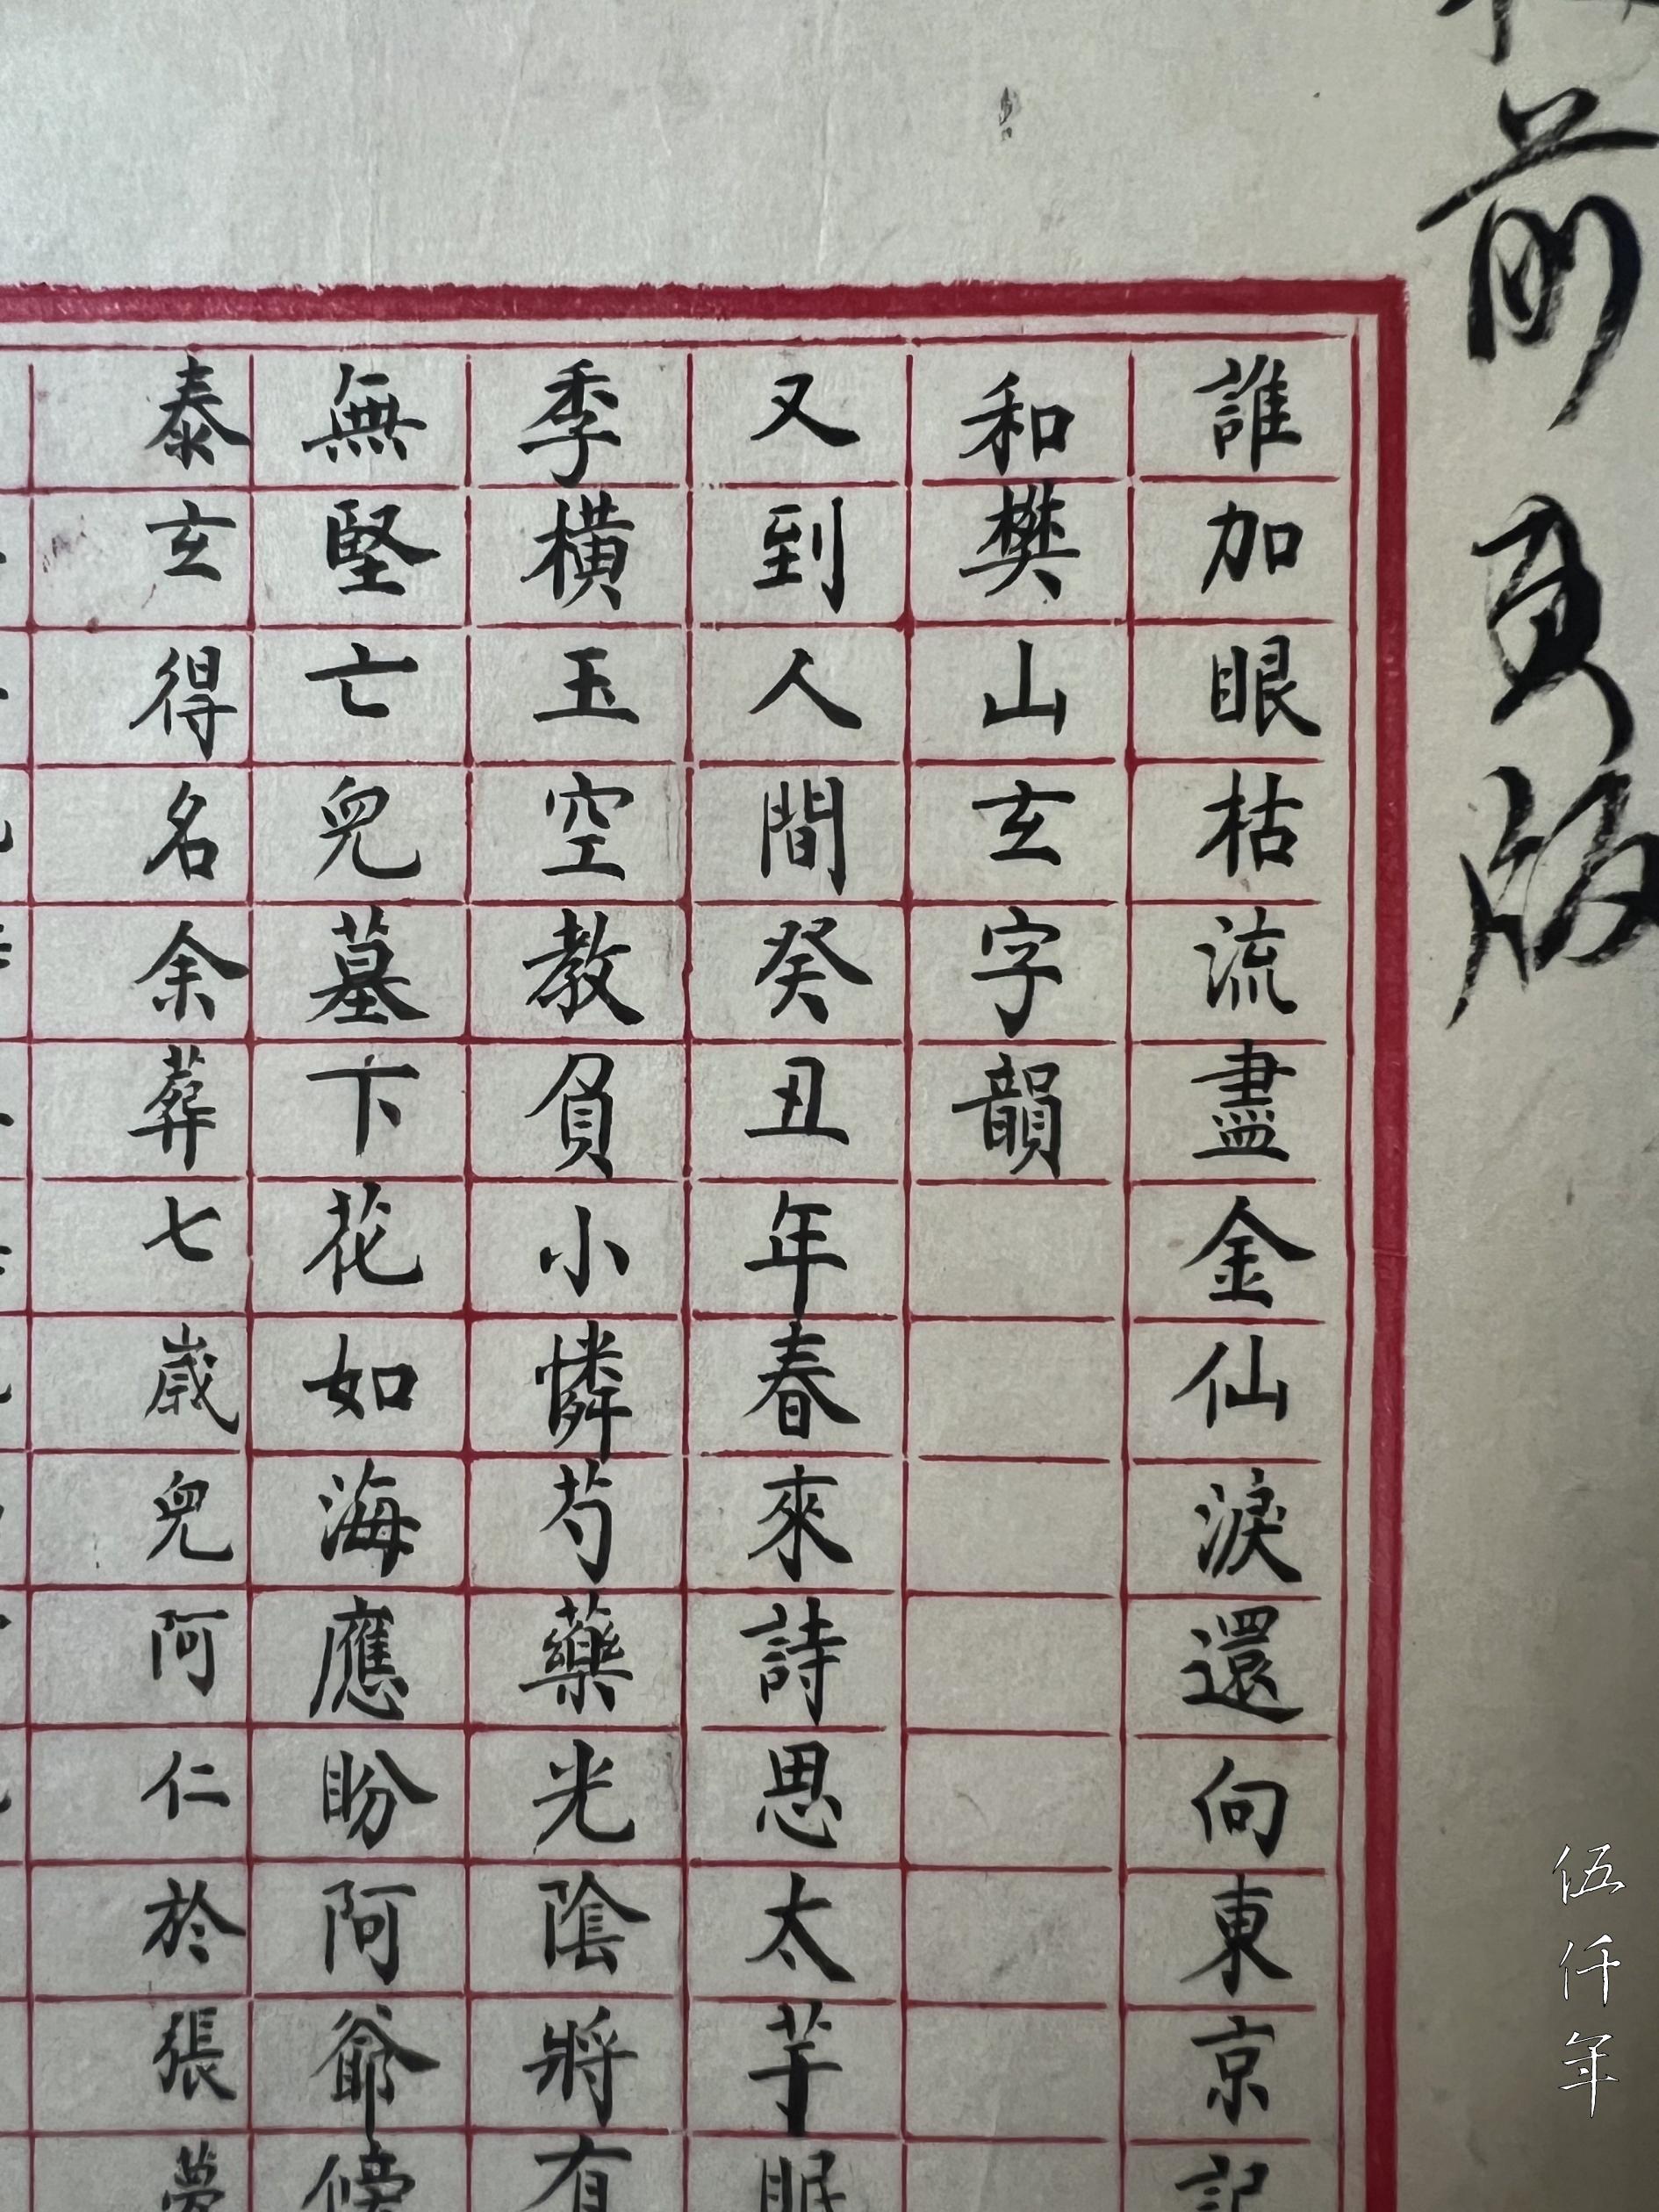 前頁版
誰加眼枯流盡金仙淚還向東京記
和樊山玄字韻
又到人間癸丑年春來詩思太芋眠
季橫玉空教負小憐芍藥光陰將有
無堅亡兒墓下花如海應盼阿爺傍
泰玄得名余葬七歲兒阿仁於張夢
伍仟年